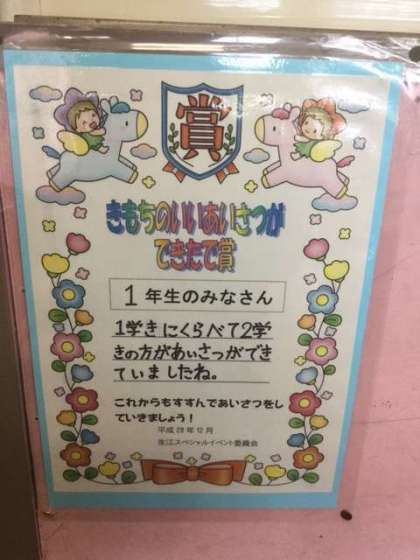 賞
きもちのいいあいさつが
できたで賞
1年生のみなさん
1学きにくらべて2学
きの方があいさつができ
ていましたね。
これからもすすんであいさつをし
ていきましょう！
平成28年12月
生江スペシャルイベント委員会